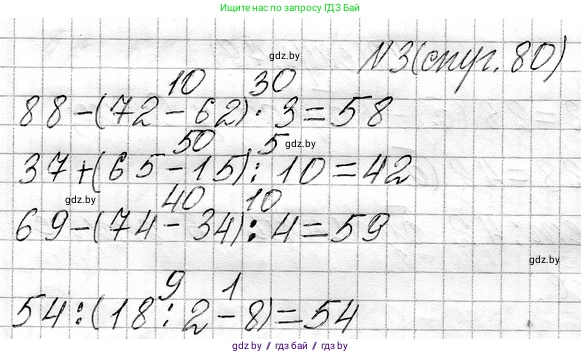 Ищите нас по запросу ГДЗ Бай
gdz.by
N3(стр. 80)
10 30
88-(72-62)·3=58
50 5
gdz.by
37+(65-15):10=42
gdz.by
40 10
69-(74-34):4=59
gdz.by
9 1
54:(18:2-8)=54
gdz.by / гдз.by / гдз.бу